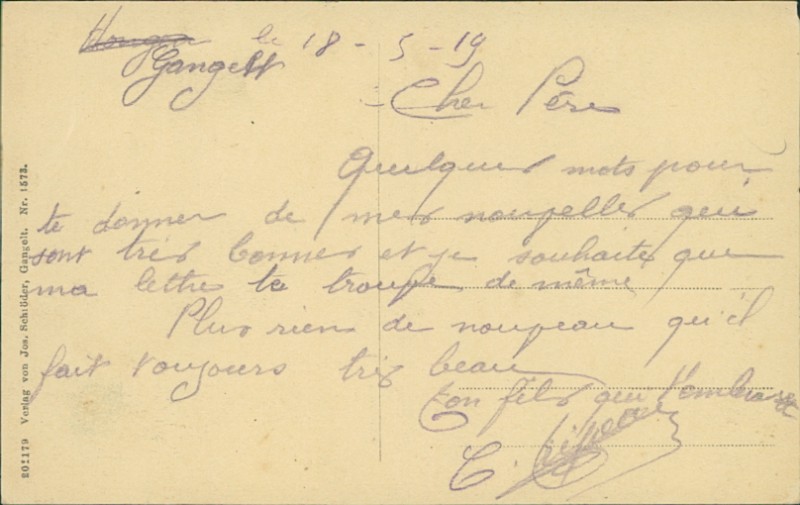 le 18 - 5 - 19
Gangelt
Cher Père
Quelques mots pour
te donner de mes nouvelles qui
sont très bonnes et je souhaite que
ma lettre te trouve de même
Plus rien de nouveau qu'il
fait toujours très beau
ton fils qui t'embrasse
C.
202179 Verlag von Jos. Schröder, Gangelt. Nr. 1573.